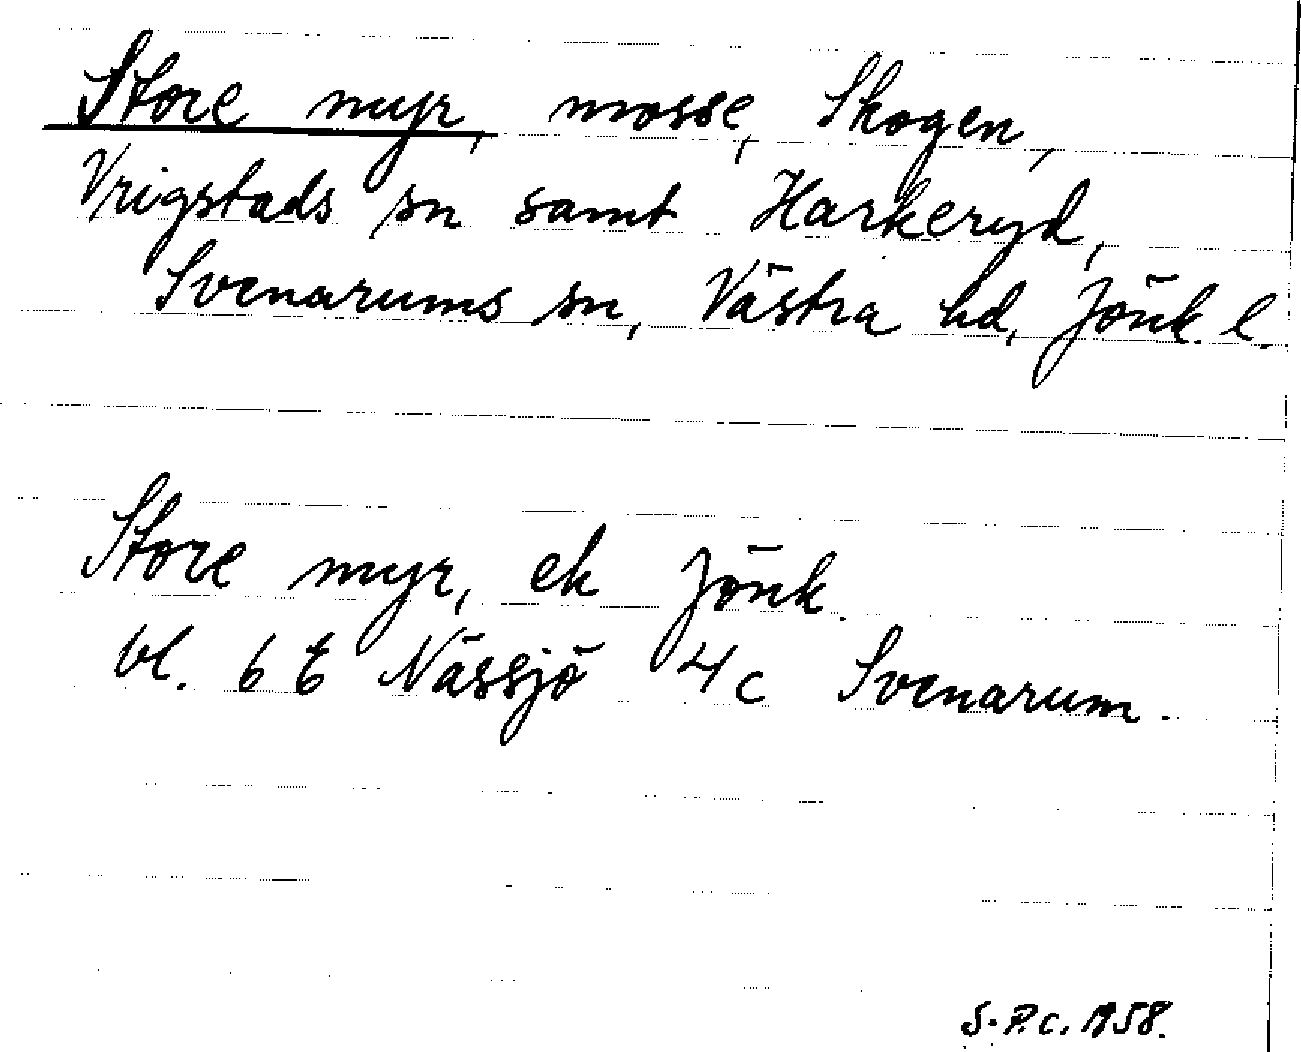 Store myr, mosse, Skogen,
Vrigstads sn samt Harkeryd,
Svenarums sn, Västra hd, Jönk. l.
Store myr, ek Jönk.
bl. 6 E Nässjö 4 c Svenarum.
S.P.C. 1958.